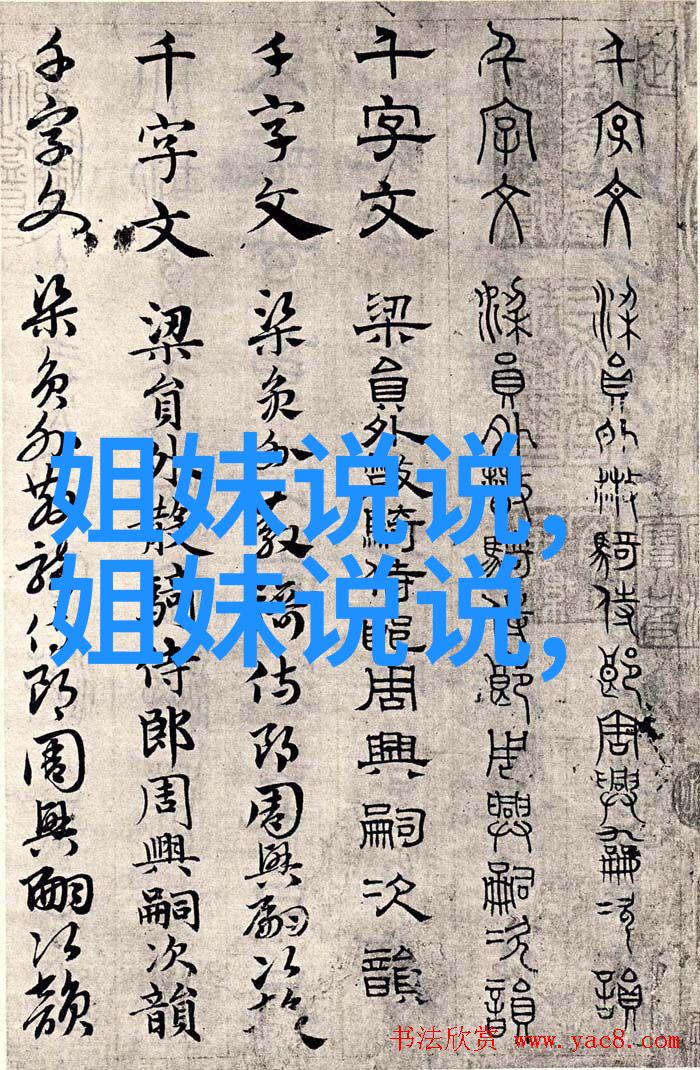 千字文 梁員外散騎侍郎周興嗣次韻
千字文 梁員外散騎侍郎周興嗣次韻
千字文 梁員外散騎侍郎周興嗣次韻
千字文 梁員外散騎侍郎周興嗣次韻
千字文 梁員外散騎侍郎周興嗣次韻
千字文 梁員外散騎侍郎周興嗣次韻
姐妹说说,
姐妹说说,
书法欣赏 www.yac8.com